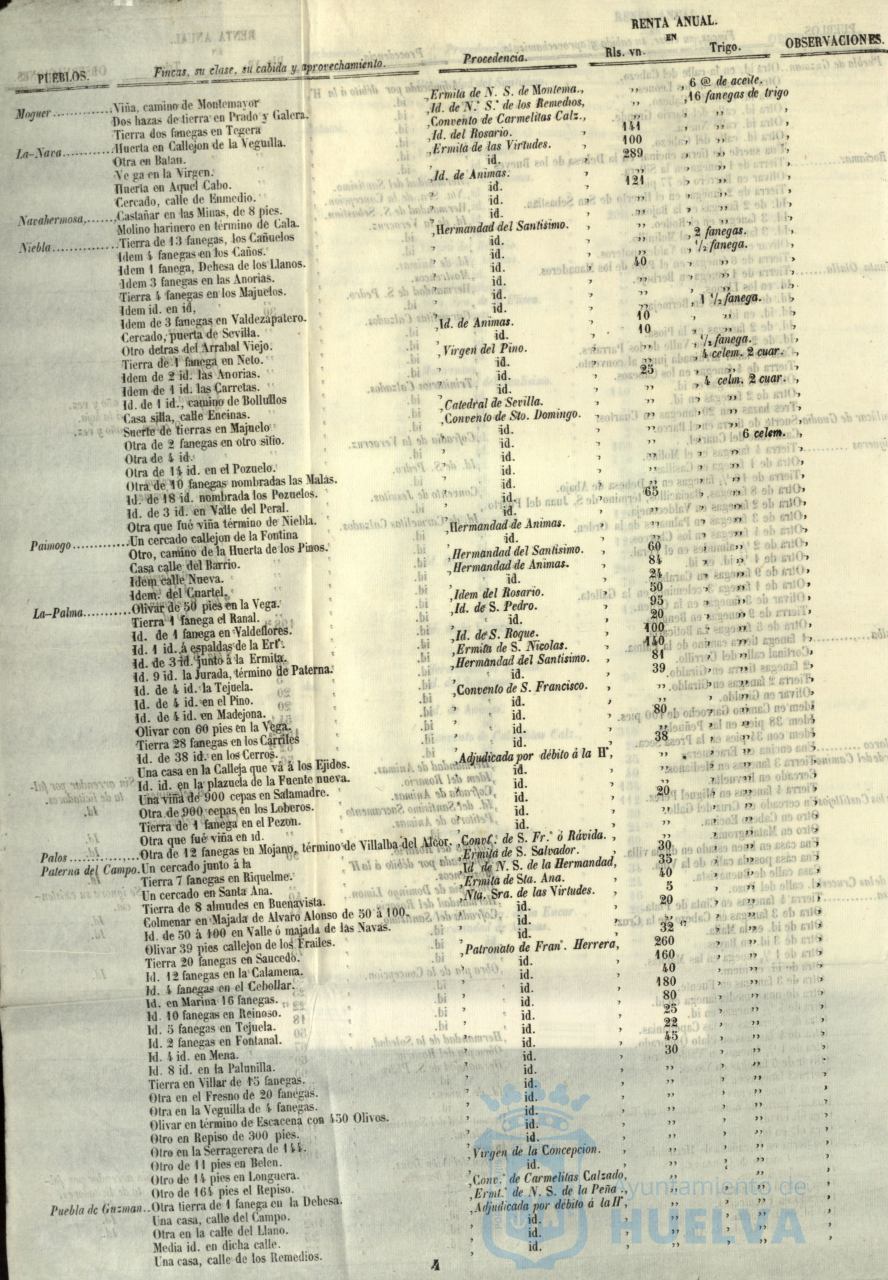 PUEBLOS.
Fincas, su clase, su cabida y aprovechamiento.
Procedencia.
RENTA ANUAL.
EN
Rls. vn.
Trigo.
OBSERVACIONES.
Moguer............Viña, camino de Montemayor
Dos hazas de tierra en Prado y Galera.
Tierra dos fanegas en Tegera
La-Nava...........Huerta en Callejon de la Veguilla.
Otra en Batan.
Vega en la Virgen.
Huerta en Aquel Cabo.
Cercado, calle de Enmedio.
Navahermosa,......Castañar en las Minas, de 8 pies.
Molino harinero en término de Cala.
Niebla..............Tierra de 13 fanegas, los Cañuelos
Idem 4 fanegas en los Caños.
Idem 1 fanega, Dehesa de los Llanos.
Idem 3 fanegas en las Anorias.
Tierra 4 fanegas en los Majuelos.
Idem id. en id.
Idem de 3 fanegas en Valdezapatero.
Cercado, puerta de Sevilla.
Otro detras del Arrabal Viejo.
Tierra de 1 fanega en Neto.
Idem de 2 id. las Anorias.
Idem de 1 id. las Carretas.
Id. de 1 id., camino de Bollullos
Casa silla, calle Encinas.
Suerte de tierras en Majuelo
Otra de 2 fanegas en otro sitio.
Otra de 4 id.
Otra de 14 id. en el Pozuelo.
Otra de 10 fanegas nombradas las Malas.
Id. de 18 id. nombrada los Pozuelos.
Id. de 3 id. en Valle del Peral.
Otra que fué viña término de Niebla.
Paimogo............Un cercado callejon de la Fontina
Otro, camino de la Huerta de los Pinos.
Casa calle del Barrio.
Idem calle Nueva.
Idem. del Cuartel.
La-Palma..........Olivar de 50 pies en la Vega.
Tierra 1 fanega el Ranal.
Id. de 1 fanega en Valdeflores.
Id. 1 id. á espaldas de la Erª.
Id. de 3 id. junto á la Ermita.
Id. 9 id. la Jurada, término de Paterna.
Id. de 4 id. la Tejuela.
Id. de 4 id. en el Pino.
Id. de 4 id. en Madejona.
Olivar con 60 pies en la Vega.
Tierra 28 fanegas en los Carriles
Id. de 38 id. en los Cerros.
Una casa en la Calleja que vá á los Ejidos.
Id. id. en la plazuela de la Fuente nueva.
Una viña de 900 cepas en Salamadre.
Otra de 900 cepas en los Loberos.
Tierra de 1 fanega en el Pezon.
Otra que fué viña en id.
Palos...............Otra de 12 fanegas en Mojano, término de Villalba del Alcor.
Paterna del Campo.Un cercado junto á la
Tierra 7 fanegas en Riquelme.
Un cercado en Santa Ana.
Tierra de 8 almudes en Buenavista.
Colmenar en Majada de Alvaro Alonso de 50 á 100.
Id. de 50 á 100 en Valle ó majada de las Navas.
Olivar 39 pies callejon de los Frailes.
Tierra 20 fanegas en Saucedo.
Id. 12 fanegas en la Calamena.
Id. 4 fanegas en el Cebollar.
Id. en Marina 16 fanegas.
Id. 10 fanegas en Reinoso.
Id. 5 fanegas en Tejuela.
Id. 2 fanegas en Fontanal.
Id. 4 id. en Mena.
Id. 8 id. en la Palunilla.
Tierra en Villar de 15 fanegas.
Otra en el Fresno de 20 fanegas.
Otra en la Veguilla de 4 fanegas.
Olivar en término de Escacena con 450 Olivos.
Otro en Repiso de 300 pies.
Otro en la Serragerera de 144.
Otro de 11 pies en Belen.
Otro de 14 pies en Longuera.
Otro de 164 pies el Repiso.
Puebla de Guzman..Otra tierra de 1 fanega en la Dehesa.
Una casa, calle del Campo.
Otra en la calle del Llano.
Media id. en dicha calle.
Una casa, calle de los Remedios.
Ermita de N. S. de Montema.,
Id. de N.ª S.ª de los Remedios,
Convento de Carmelitas Calz.,
Id. del Rosario.
Ermita de las Virtudes.
id.
Id. de Animas.
id.
id.
id.
Hermandad del Santísimo.
id.
id.
id.
id.
id.
id.
Id. de Animas.
id.
Virgen del Pino.
id.
id.
id.
Catedral de Sevilla.
Convento de Sto. Domingo.
id.
id.
id.
id.
id.
id.
id.
Hermandad de Animas.
id.
Hermandad del Santísimo.
Hermandad de Animas.
id.
Idem del Rosario.
Id. de S. Pedro.
id.
Id. de S. Roque.
Ermita de S. Nicolas.
Hermandad del Santísimo.
id.
Convento de S. Francisco.
id.
id.
id.
id.
Adjudicada por débito á la Hª,
id.
id.
id.
id.
id.
Convt.º de S. Fr.º ó Rávida.
Ermita de S. Salvador.
Id de N. S. de la Hermandad,
Ermita de Sta. Ana.
Nta. Sra. de las Virtudes.
id.
id.
id.
Patronato de Franº. Herrera,
id.
id.
id.
id.
id.
id.
id.
id.
id.
id.
id.
id.
id.
id.
Virgen de la Concepcion.
id.
Conv.º de Carmelitas Calzado,
Ermt.ª de N. S. de la Peña.,
Adjudicada por débito á la Hª,
id.
id.
id.
141
100
289
121
40
10
10
25
65
60
84
24
50
95
20
100
140
81
39
80
38
20
30
35
40
5
20
32 17
260
160
40
180
80
25
22
45
30
6 @ de aceite.
16 fanegas de trigo
2 fanegas.
1/2 fanega.
1 1/2 fanega.
1/2 fanega.
4 celem. 2 cuar.
4 celm. 2 cuar.
6 celem.
4
Ayuntamiento de
HUELVA